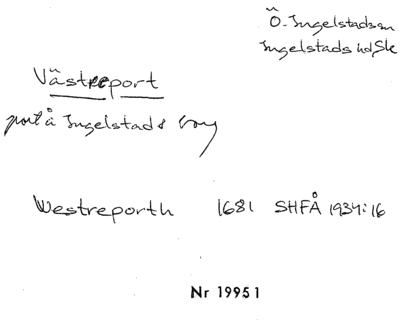 Ö. Ingelstads sn
Ingelstads hd, Sk
Västreport
port å Ingelstads borg
Westreporth 1681 SHFÅ 1934:16
Nr 19951